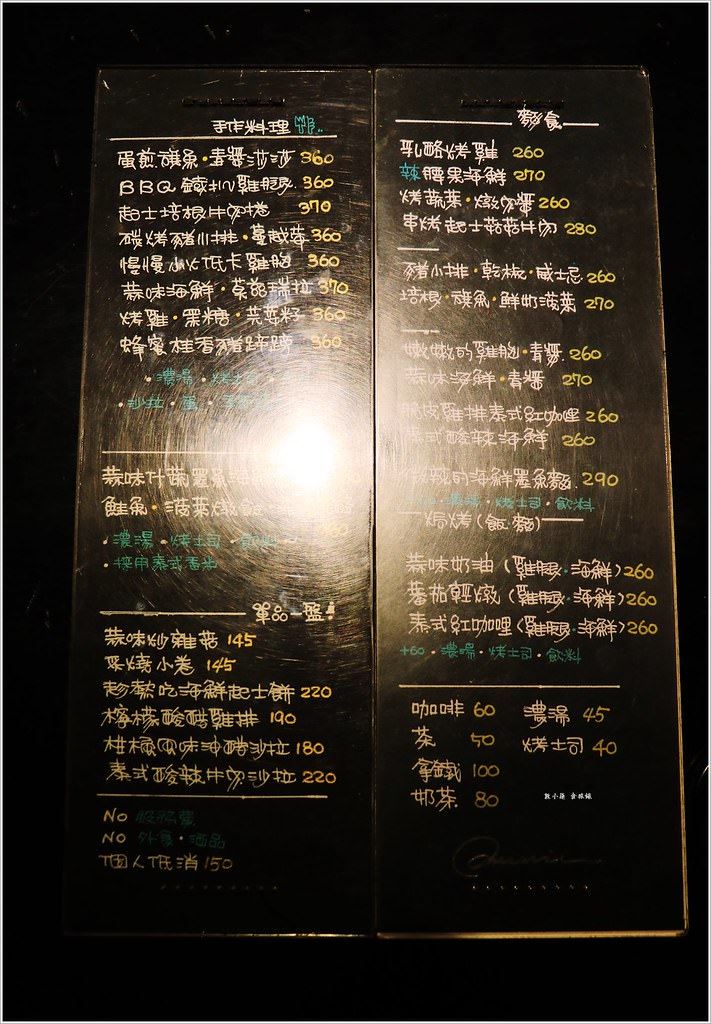 手作料理
蛋煎旗魚·青醬莎莎 360
BBQ 雞腿 360
起士培根牛肉捲 370
碳烤豬小排·蔓越莓 360
慢慢小火低卡雞胸 360
蒜味海鮮·蕃茄瑞拉 370
烤雞·黑糖·芫荽籽 360
蜂蜜桂香豬蹄膀 360
·濃湯·烤士司
·沙拉·蛋
蒜味什蔬墨魚海
鮭魚·菠菜燉飯
·濃湯·烤士司·飲料
·採用泰式香米
單品一盤!
蒜味炒雜菇 145
小卷 145
趁熱吃海鮮起士餅 220
檸檬酸醋雞排 190
柑橘風味油醋沙拉 180
泰式酸辣牛肉沙拉 220
No 服務費
No 外食·酒品
個人低消 150
麵食
乳酪烤雞 260
辣腰果海鮮 270
烤蔬菜·燉肉醬 260
串烤起士菇菇牛肉 280
豬小排·乾椒·威士忌 260
培根·旗魚·鮮奶菠菜 270
嫩嫩的雞胸·青醬 260
蒜味海鮮·青醬 270
脆皮雞排泰式紅咖哩 260
泰式酸辣海鮮 260
辣的海鮮墨魚麵 290
濃湯·烤士司·飲料
焗烤(飯.麵)
蒜味奶油(雞腿·海鮮) 260
蕃茄輕燉(雞腿·海鮮) 260
泰式紅咖哩(雞腿·海鮮) 260
+60·濃湯·烤士司·飲料
咖啡 60 濃湯 45
茶 50 烤士司 40
拿鐵 100
奶茶 80